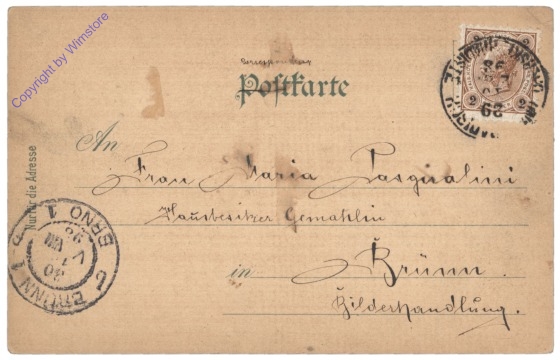 Copyright by Wimstore
Postkarte
An
Nur für die Adresse
Frau Maria Pasqualini
Hausbesitzer Gemahlin
in Brünn.
Bilderhandlung.
BRÜNN 1
BRNO 1
98
2
2
98
29